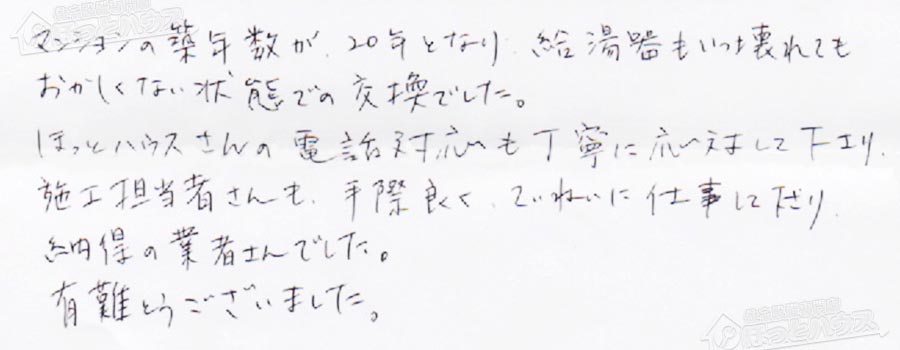 マンションの築年数が、20年となり、給湯器もいつ壊れても
おかしくない状態での交換でした。
ほっとハウスさんの電話対応も丁寧に応えまして下さり、
施工担当者さんも、手際良く、ていねいに仕事して下さり、
納得の業者さんでした。
有難とうございました。
ほっとハウス